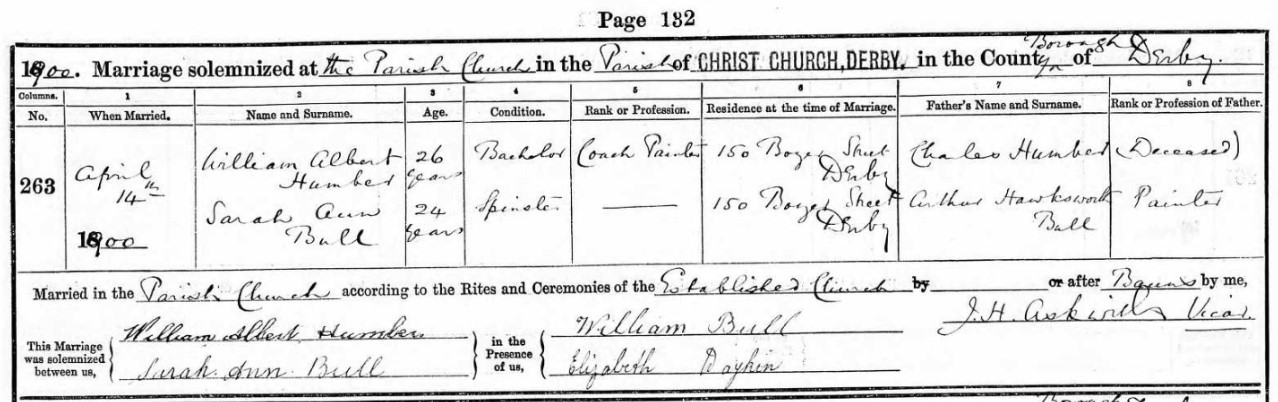 Page 132
1900. Marriage solemnized at the Parish Church in the Parish of CHRIST CHURCH, DERBY, in the County Borough of Derby.
Columns. 1 2 3 4 5 6 7 8
No. When Married. Name and Surname. Age. Condition. Rank or Profession. Residence at the time of Marriage. Father's Name and Surname. Rank or Profession of Father.
263 April 14th 1900 William Albert Humber 26 years Bachelor Coach Painter 150 Boyer Street Derby Charles Humber (Deceased)
Sarah Ann Bull 24 years Spinster 150 Boyer Street Derby Arthur Hawksworth Bull Painter
Married in the Parish Church according to the Rites and Ceremonies of the Established Church by or after Banns by me,
J.H. Askwith Vicar.
This Marriage was solemnized between us, William Albert Humber in the Presence of us, William Bull
Sarah Ann Bull Elizabeth Daykin